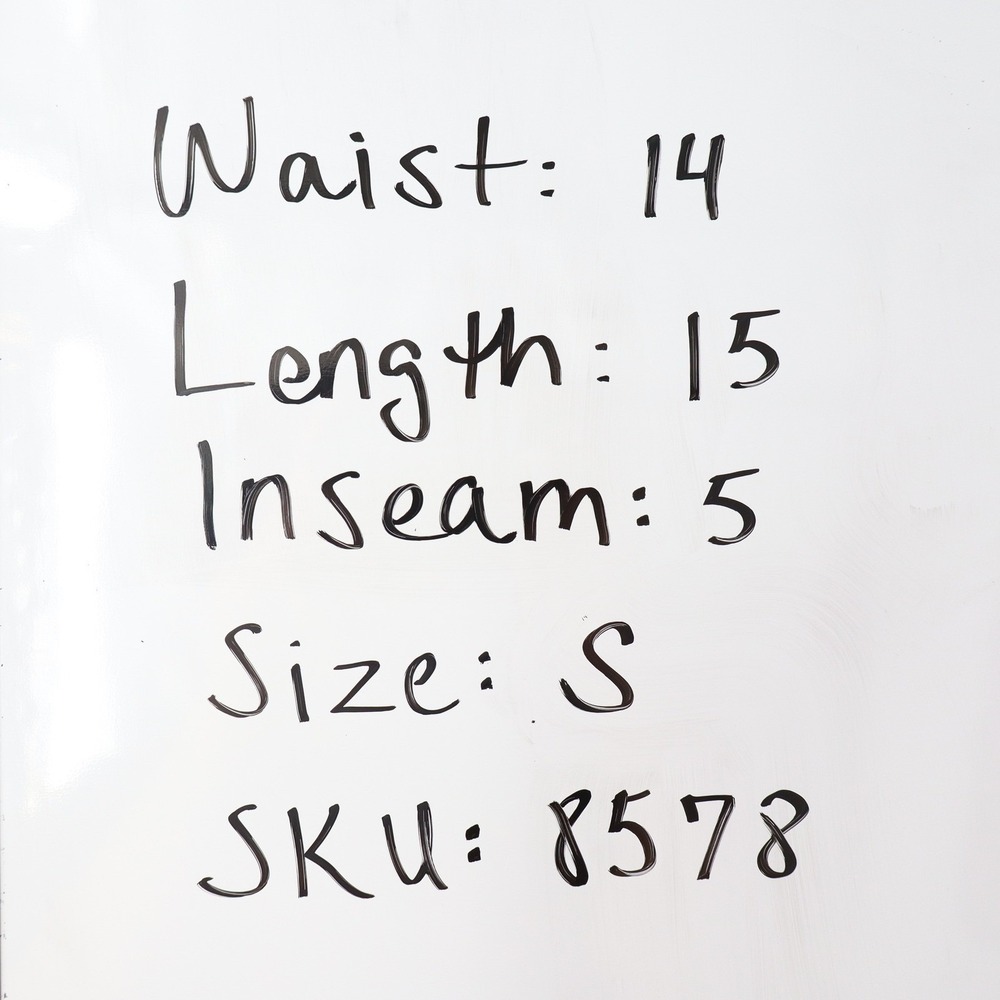 Waist: 14
Length: 15
Inseam: 5
Size: S
SKU: 8578